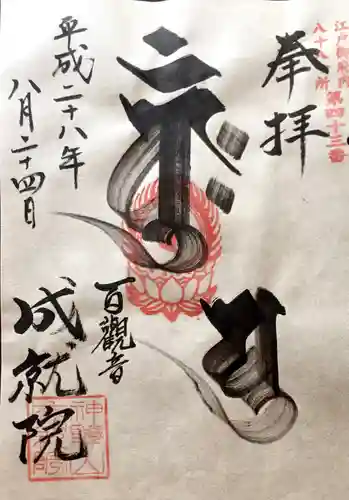 江戸御府内
八十八ヶ所 第四十三番
奉拝
百觀音
平成二十八年
八月二十四日
成就院